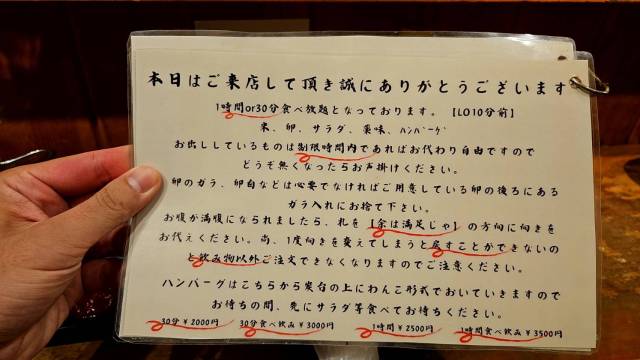 本日はご来店して頂き誠にありがとうございます
1時間or30分食べ放題となっております。【LO10分前】
米、卵、サラダ、薬味、ハンバーグ
お出ししているものは制限時間内であればお代わり自由ですので
どうぞ無くなったらお声掛けください。
卵のガラ、卵白などは必要でなければご用意している卵の後ろにある
ガラ入れにお捨て下さい。
お腹が満腹になられましたら、札を【余は満足じゃ】の方向に向きを
お代えください。尚、1度向きを変えてしまうと戻すことができないの
と飲み物以外ご注文できなくなりますのでご注意ください。
ハンバーグはこちらから炭台の上にわんこ形式でおいていきますので
お待ちの間、先にサラダ等食べてお待ちください。
30分¥2000円 30分食べ飲み¥3000円 1時間¥2500円 1時間食べ飲み¥3500円